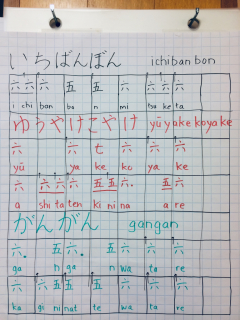 いちばんぼん ichiban bon
六 六 六 五 五 六 六 六 六
i chi ban bo n mi tsu ke ta
ゆうやけこやけ yū yake koyake
六 六 七 六 六 六
yū ya ke ko ya ke
六 六 六 六 五 五 六 五 六
a shi ta ten ki ni na a re
がんがん gangan
六 五 六 五 六 六 六
ga n ga n wa ta re
六 六 五 五 五 六 六 六
ka gi ni nat te wa ta re